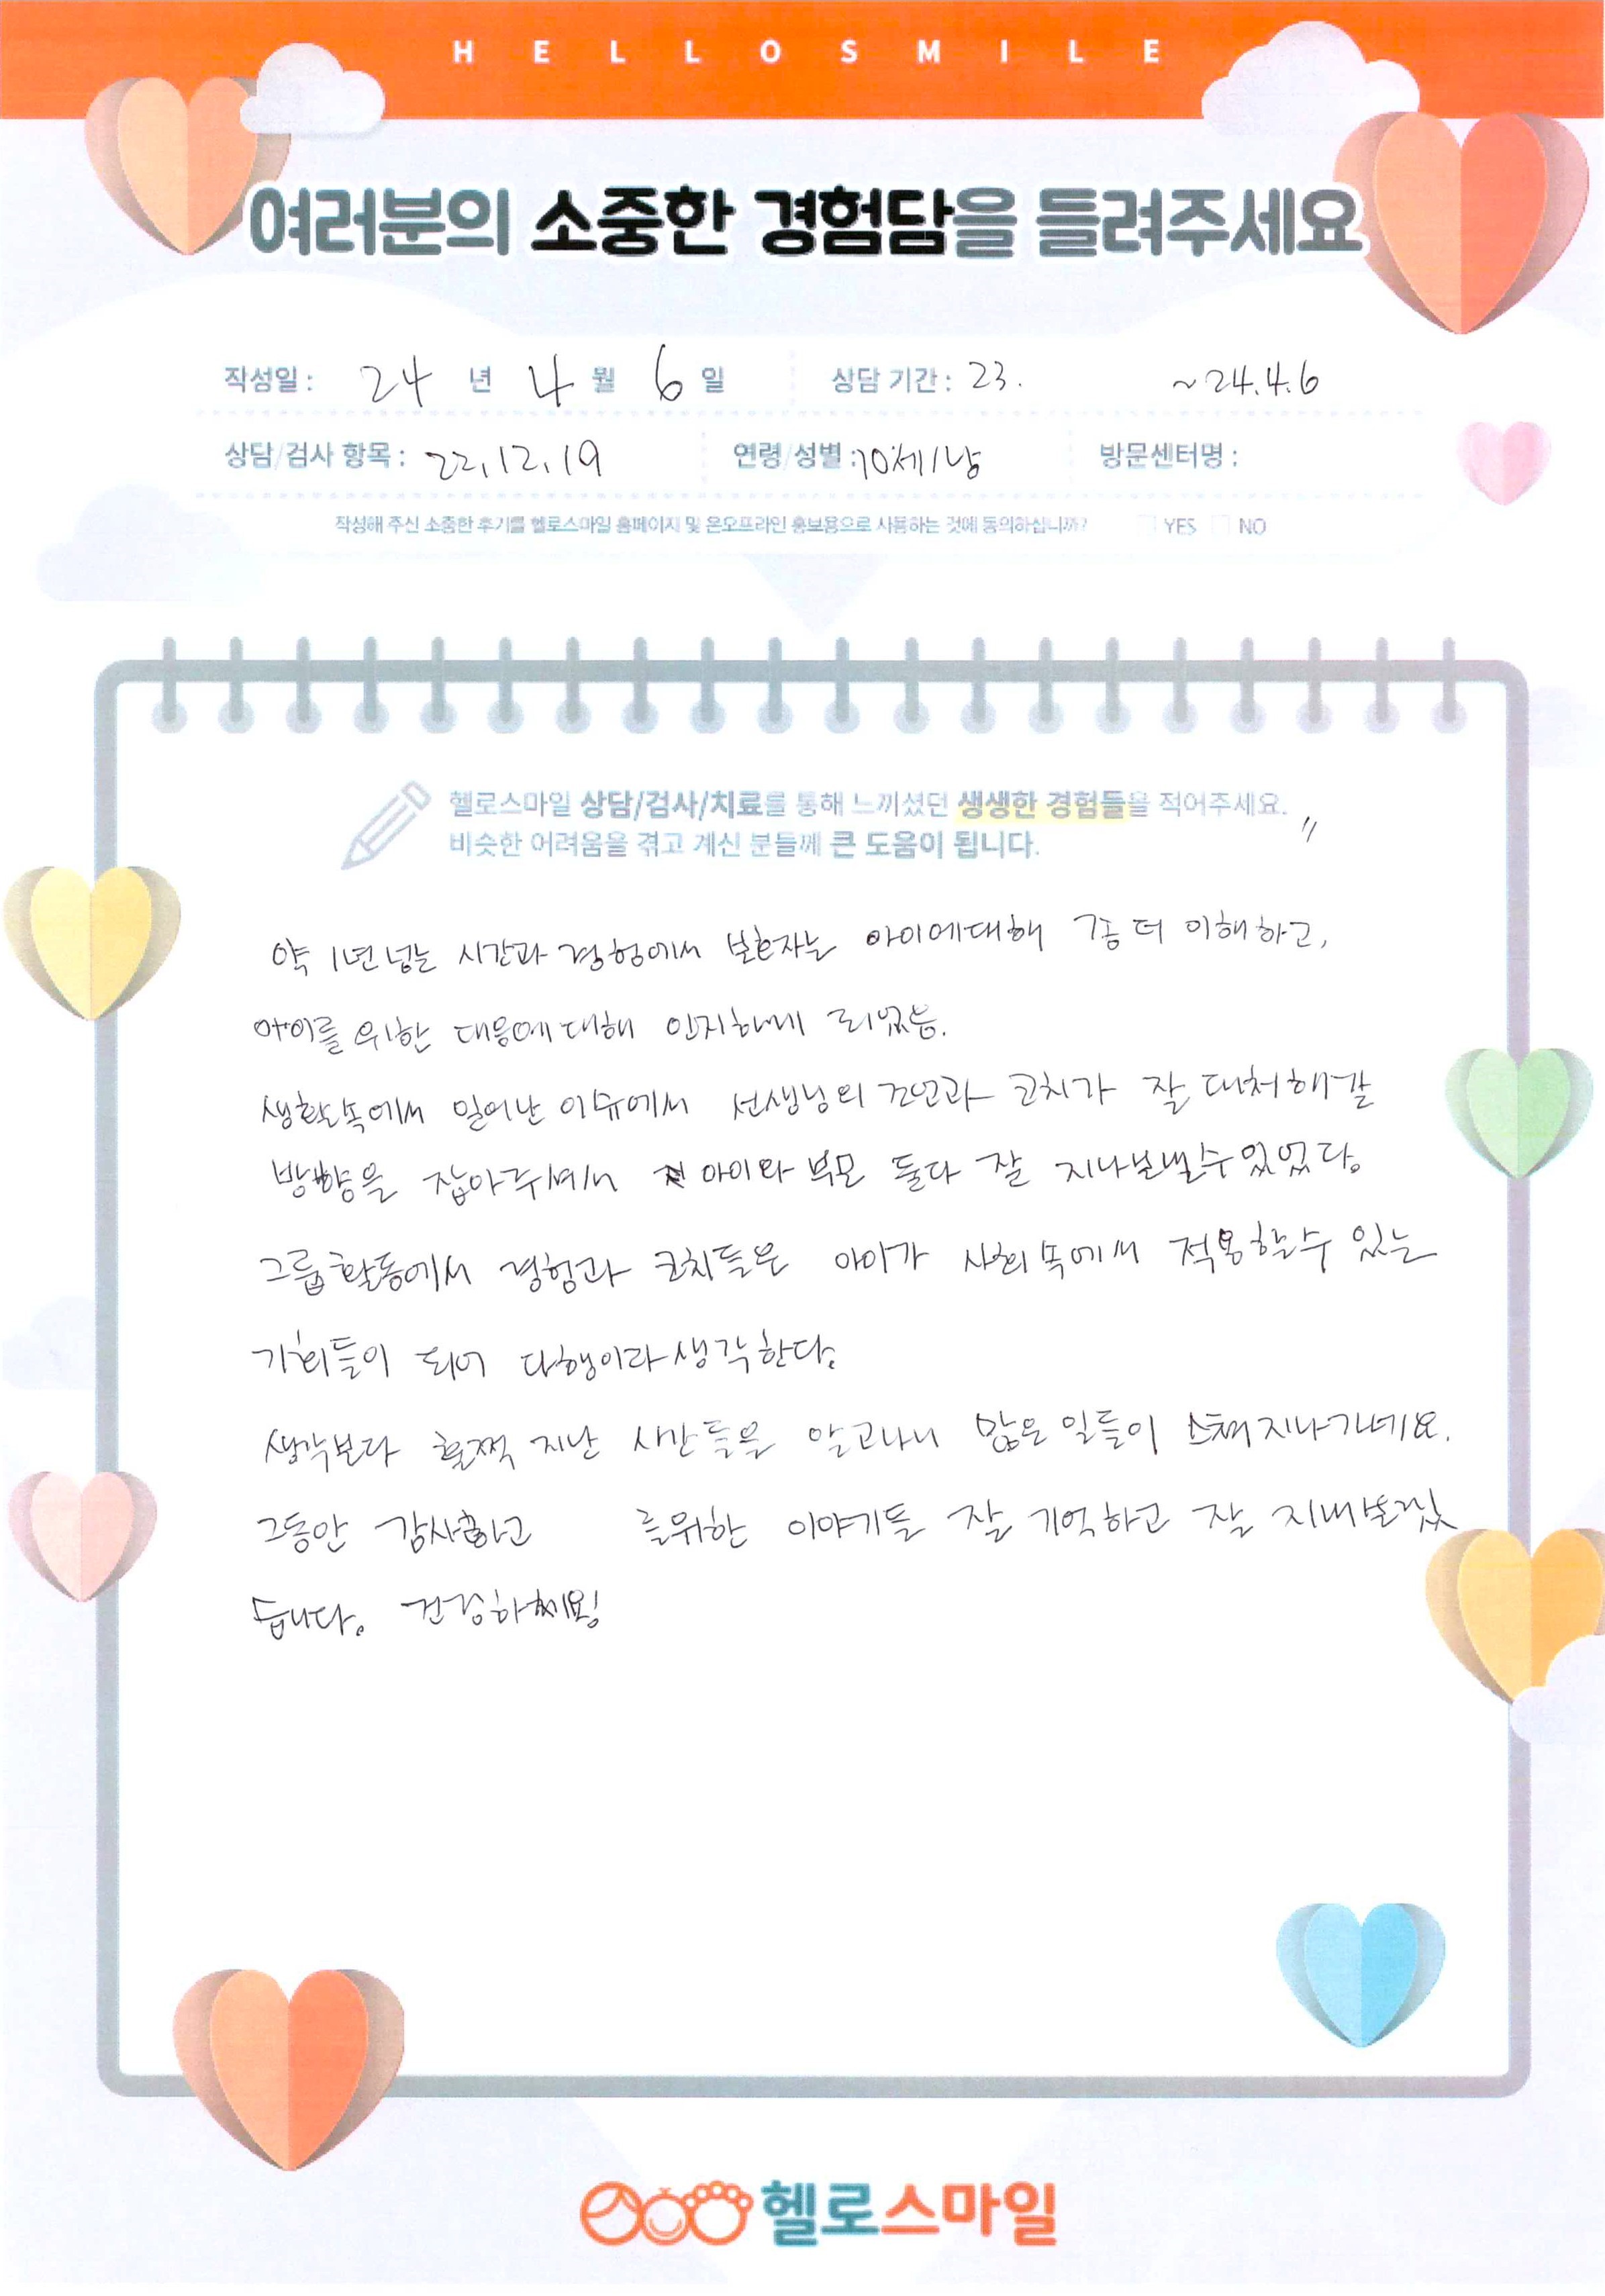 HELLOSMILE
여러분의 소중한 경험담을 들려주세요
작성일 : 24 년 4 월 6 일 상담 기간 : 23. ~24.4.6
상담/검사 항목 : 22.12.19 연령/성별 : 10세/남 방문센터명 :
작성해 주신 소중한 후기를 헬로스마일 홈페이지 및 온오프라인 홍보용으로 사용하는 것에 동의하십니까? YES NO
헬로스마일 상담/검사/치료를 통해 느끼셨던 생생한 경험들을 적어주세요.
비슷한 어려움을 겪고 계신 분들께 큰 도움이 됩니다.
약 1년 넘는 시간과 경험에서 보호자는 아이에대해 좀 더 이해하고,
아이를 위한 대응에대해 인지하게 되었음.
생활속에서 일어난 이슈에서 선생님의 조언과 코치가 잘 대처해갈
방향을 잡아주셔서 아이와 부모 둘다 잘 지나보낼수있었다.
그룹활동에서 경험과 코치들은 아이가 사회속에서 적용할수 있는
기회들이 되어 다행이라생각한다.
생각보다 훌쩍 지난 시간들을 알고나니 많은 일들이 스쳐지나가네요.
그동안 감사하고 를위한 이야기들 잘 기억하고 잘 지내보겠
습니다. 건강하세요
헬로스마일